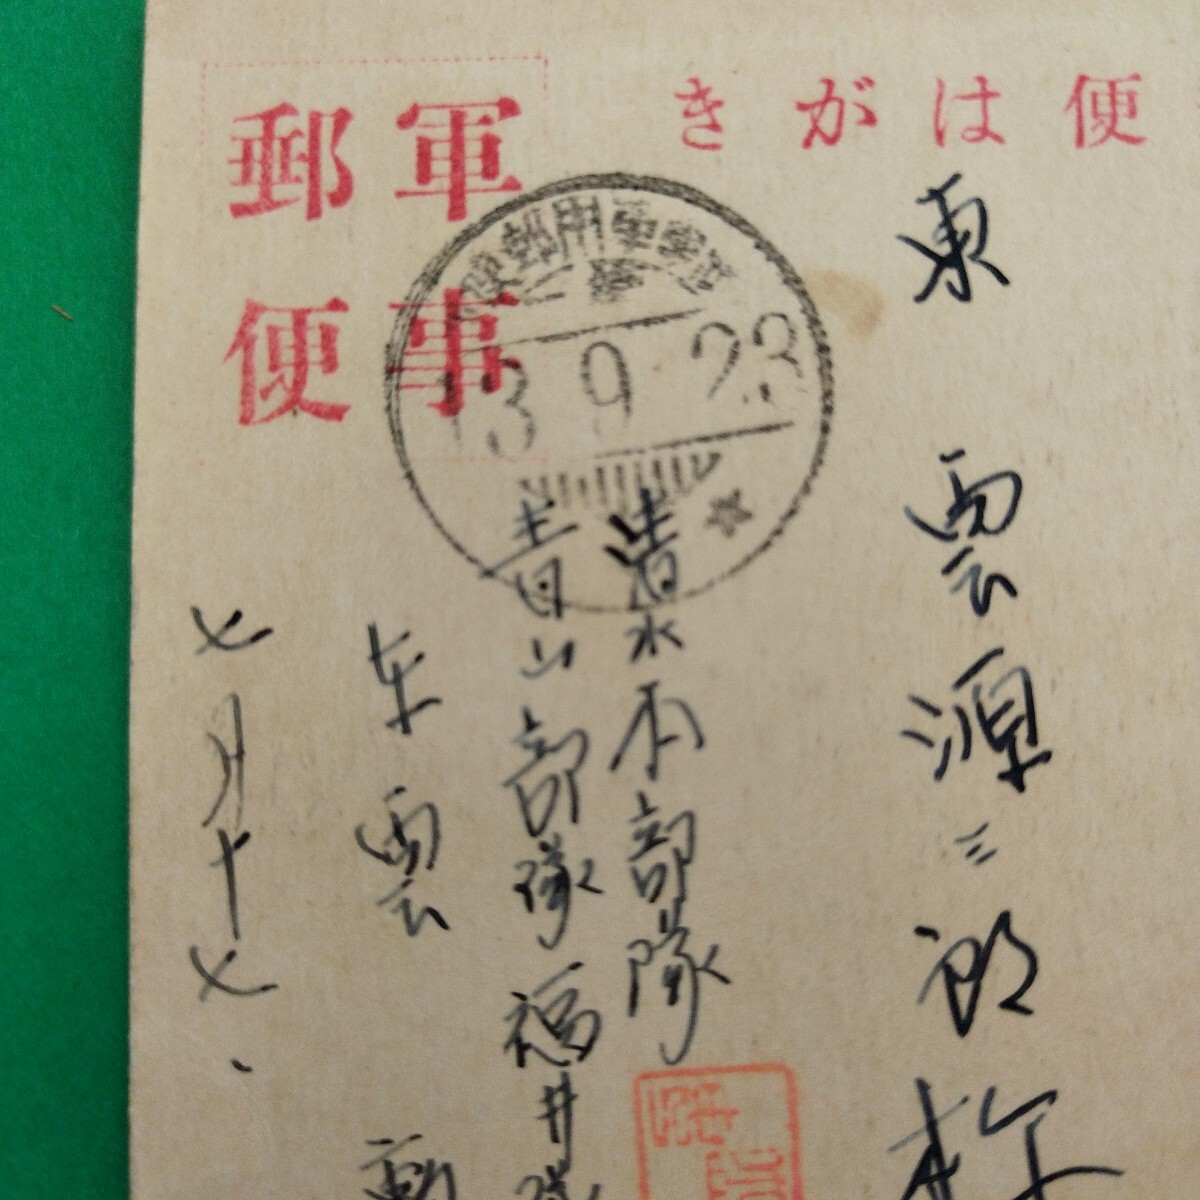 便はがき
軍事
郵便
13 9 23
東雲源三郎
清水本部隊
青山部隊福井隊
东雲
七月十七、